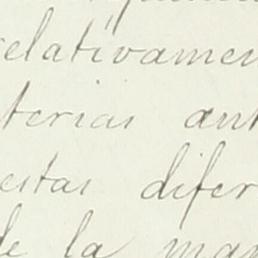 relativamen
terias ant
estas difer
de la man